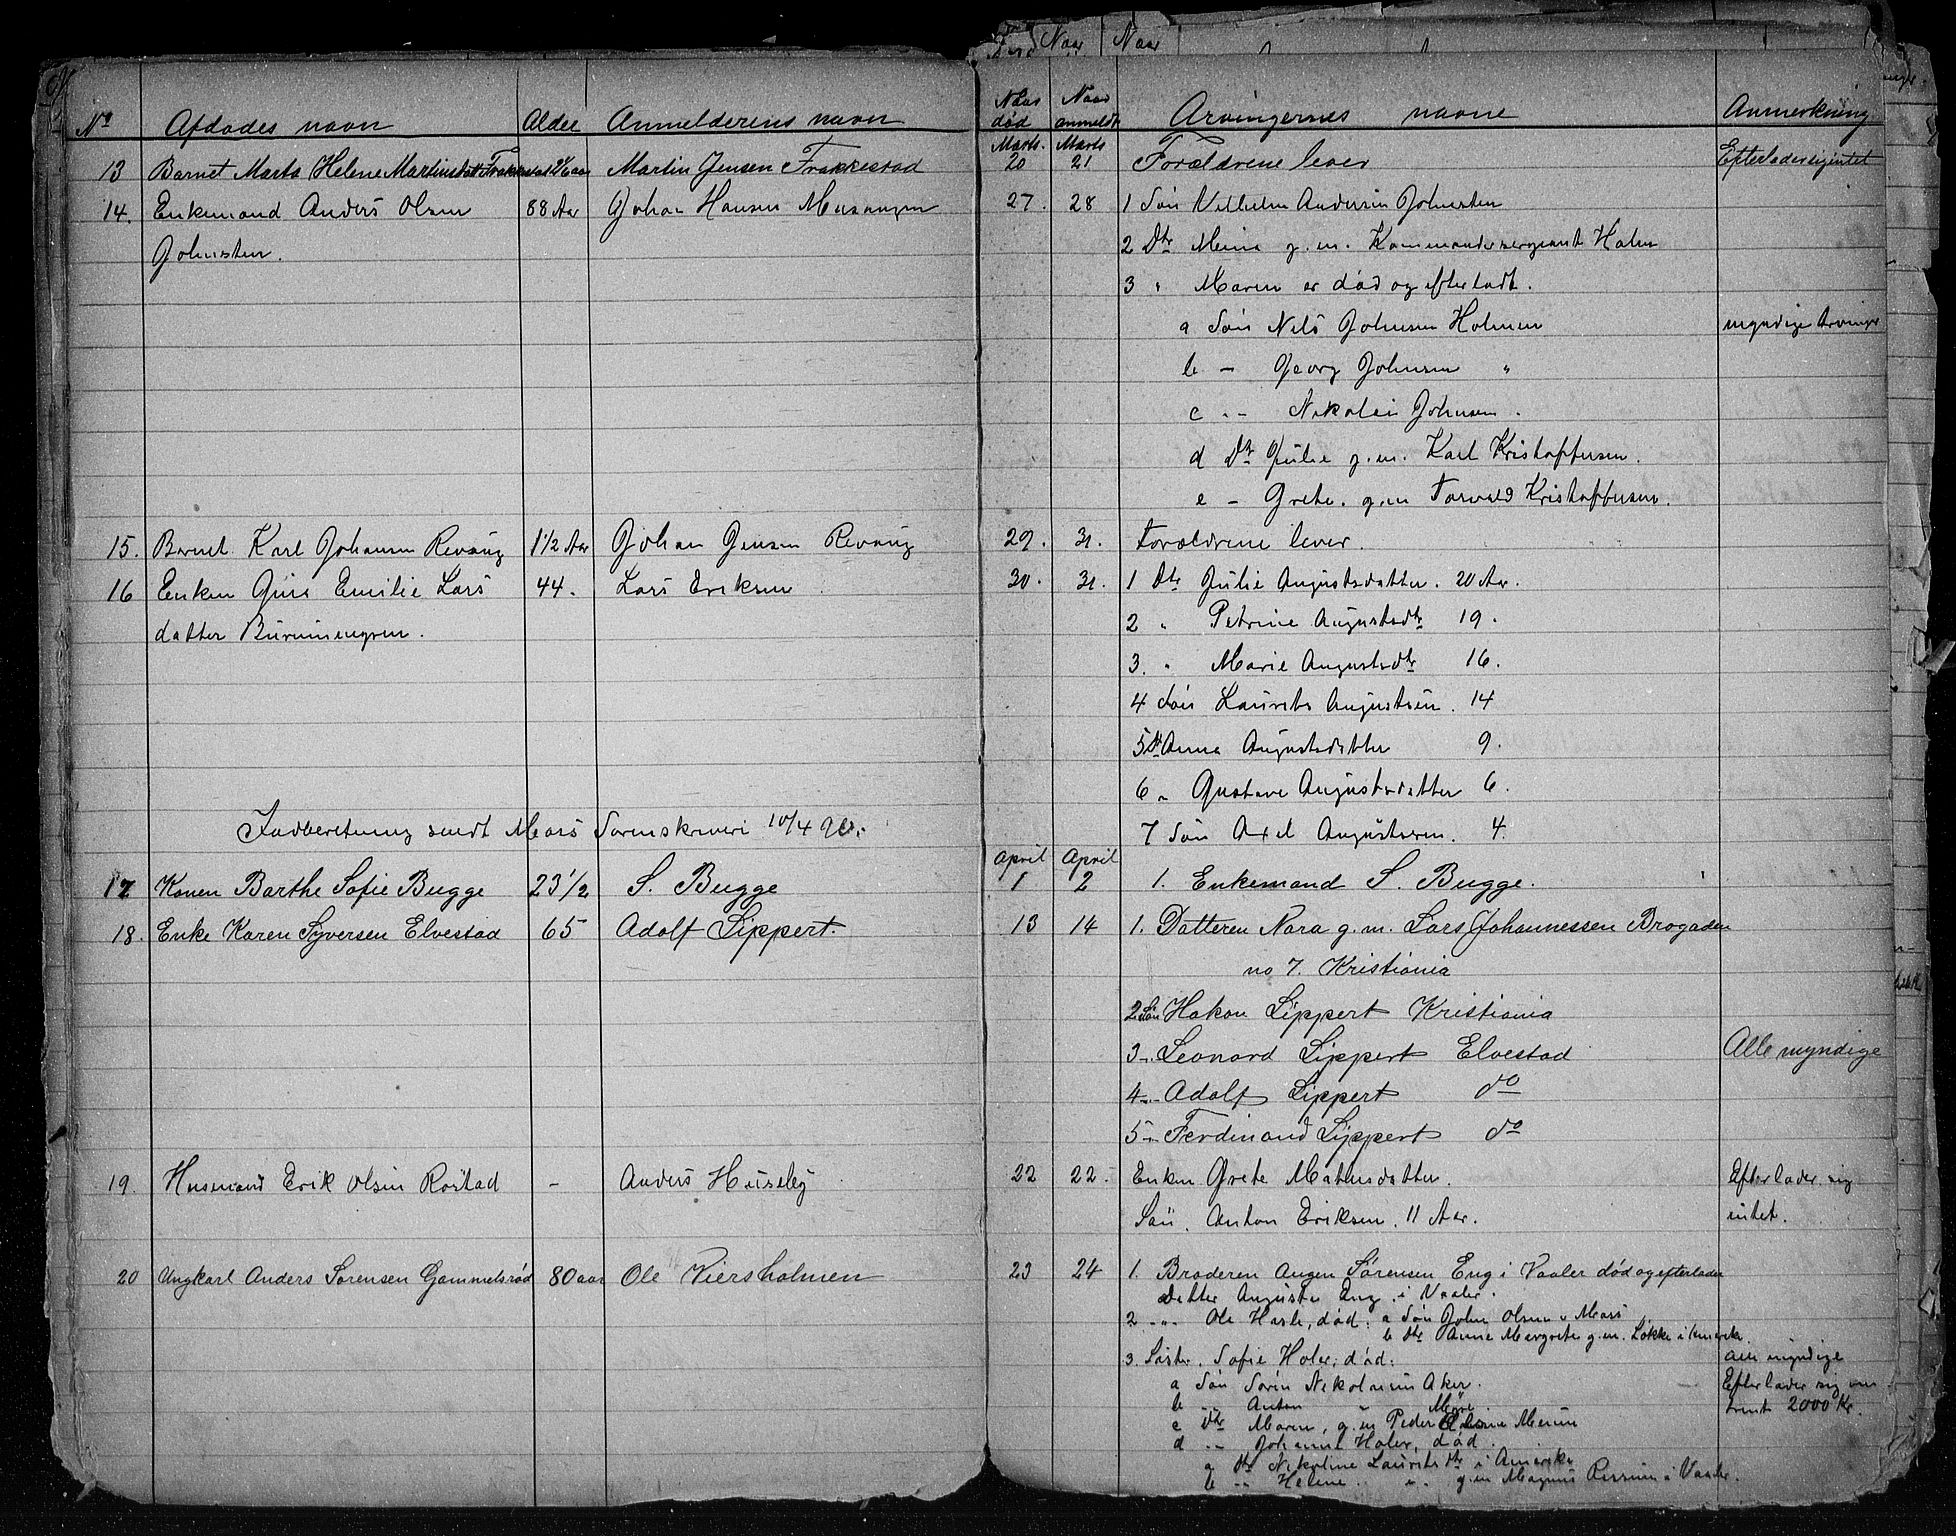 No Afdødes navn Alder Anmelderens navn Naar død Naar anmeldt Arvingernes navne Anmerkning
Marts. Marts
13 Barnet Marta Helene Martinsdatt Frakkestad aar Martin Jensen Frakkestad 20 21. Forældrene lever Efterlader sig intet
14. Enkemand Anders Olsen 88 Aar Johan Hansen 27. 28 1 Søn Vilhelm Andersen Johnsten
Johnsten. 2 Dtr Mina g.m. Kommandersergeant Holm
3 " Maren er død og efterladt.
a Søn Nils Johnsen Holmen myndige Arvinger
b - Georg Johnsen "
c -- Nikolai Johnsen.
d Dtr Julie g.m. Karl Kristoffersen.
e - Grete. g.m Torvald Kristoffersen.
15. Barnet Karl Johansen Revaug 1 1/2 Aar Johan Jensen Revaug 29. 31. Forældrene lever.
16 Enken Emilie Lars 44. Lars Eriksen 30. 31. 1 Dtr Julie Augustsdatter. 20 Aar.
datter 2 " Petrine Augustsdtr 19.
3. " Marie Augustsdtr 16.
4 Søn Laurits Augustsen. 14
5 Dt Anna Augustsdatter 9.
6 " Gustave Augustsdatter 6.
Indberetning sendt Moss Sorenskriveri 10/4 90.
7 Søn Axel Augustsen. 4.
April April
17 Konen Barthe Sofie Bugge 23 1/2 S. Bugge 1 2 1. Enkemand S. Bugge.
18. Enke Karen Syversen Elvestad 65 Adolf Lippert. 13 14 1. Datteren Nora g.m. Lars Johannessen Brogaden
no 7. Kristiania
2 Søn Hakon Lippert Kristiania
3 -. Leonard Lippert Elvestad Alle myndige
4 -. Adolf Lippert do
5 -. Ferdinand Lippert do
19. Husmand Erik Olsen Røstad - Anders Huseby 22 22. Enken Grete Mathisdatter. Efterlader sig
Søn. Anton Eriksen. 11 Aar. intet.
20 Ungkarl Anders Sørensen Gammelsrød 80 aar Ole Kiersholmen 23 24 1. Broderen Augen Sørensen Eng i Vaaler død og efterlader
datter Auguste Eng. i Vaaler.
2 -"- Ole død: a Søn John Olsen v Moss
b dtr Anne Margrete g.m. Løkke i Amerik.
3. Søster. Sofie Holer, død. alle myndige
a Søn Søren Nikolaisen Aker. Efterlader sig om
b -- Anton " Moss. trent 2000 Kr.
c Dtr Maren, g.m Peder
d -- Johanne Holer, død.
a dtr Nikoline Lauritsdtr i Amerika
b -- Helene " " g.m Magnus i Vaaler.